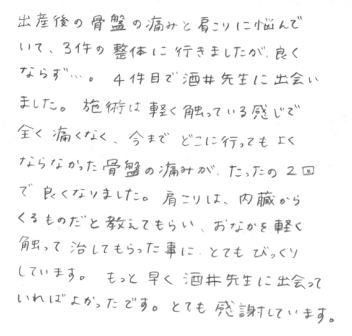 出産後の骨盤の痛みと肩こりに悩んで
いて、3件の整体に行きましたが、良く
ならず…。4件目で酒井先生に出会い
ました。施術は軽く触っている感じで
全く痛くなく、今までどこに行ってもよく
ならなかった骨盤の痛みが、たったの2回
で良くなりました。肩こりは、内臓から
くるものだと教えてもらい、おなかを軽く
触って治してもらった事に、とてもびっくり
しています。もっと早く酒井先生に出会って
いればよかったです。とても感謝しています。